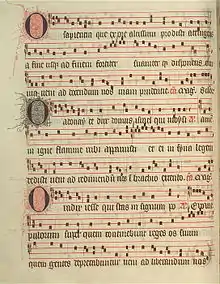 sapientia que ex ore altissimi prodisti attingens
a fine usque ad finem fortiter suaviter que disponens om
nia veni ad docendum nos viam prudentie
adonay et dux domus israel qui moysi
in igne flamme rubi apparuisti et ei in syna legem
dedisti veni ad redimendum nos i brachio extento
radix iesse qui stas in signum po
pulorum super quem continebunt reges os suum
quem gentes deprecabuntur veni ad liberandum nos